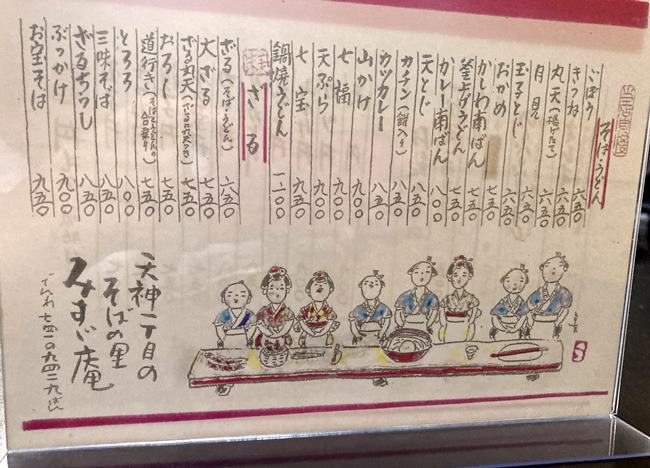 そば・うどん
ごぼう 六五〇
きつね 六五〇
丸天(揚げたて) 六五〇
月見 六五〇
玉子とじ 六五〇
おかめ 六五〇
かしわ南ばん 七五〇
釜上げうどん 七五〇
カレー南ばん 八〇〇
天とじ 八五〇
カチン(餅入り) 八五〇
カツカレー 八五〇
山かけ 九〇〇
七福 九〇〇
天ぷら 九〇〇
七宝 九五〇
鍋焼うどん 一一〇〇
ざる
ざる(そば・うどん) 六五〇
大ざる 七五〇
ざる丸天(ざるに丸天つき) 七五〇
おろし 七五〇
道行き(そばとうどんの合乗り) 七五〇
とろろ 八〇〇
三味そば 八五〇
ざるちらし 八五〇
ぶっかけ 九〇〇
お宝そば 九五〇
天神一丁目の
そばの里
みすゞ庵
でんわ 七四一の九四二九ばん